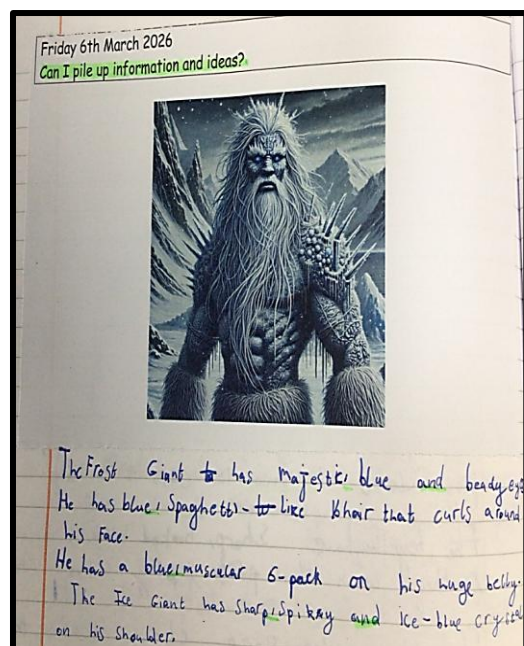 Friday 6th March 2026
Can I pile up information and ideas?
The Frost Giant has majestic, blue and beady
He has blue, spaghetti-like hair that curls around
his face.
He has a blue, muscular 6-pack on his huge belly.
The Ice Giant has sharp, spikky and ice-blue
on his shoulder.